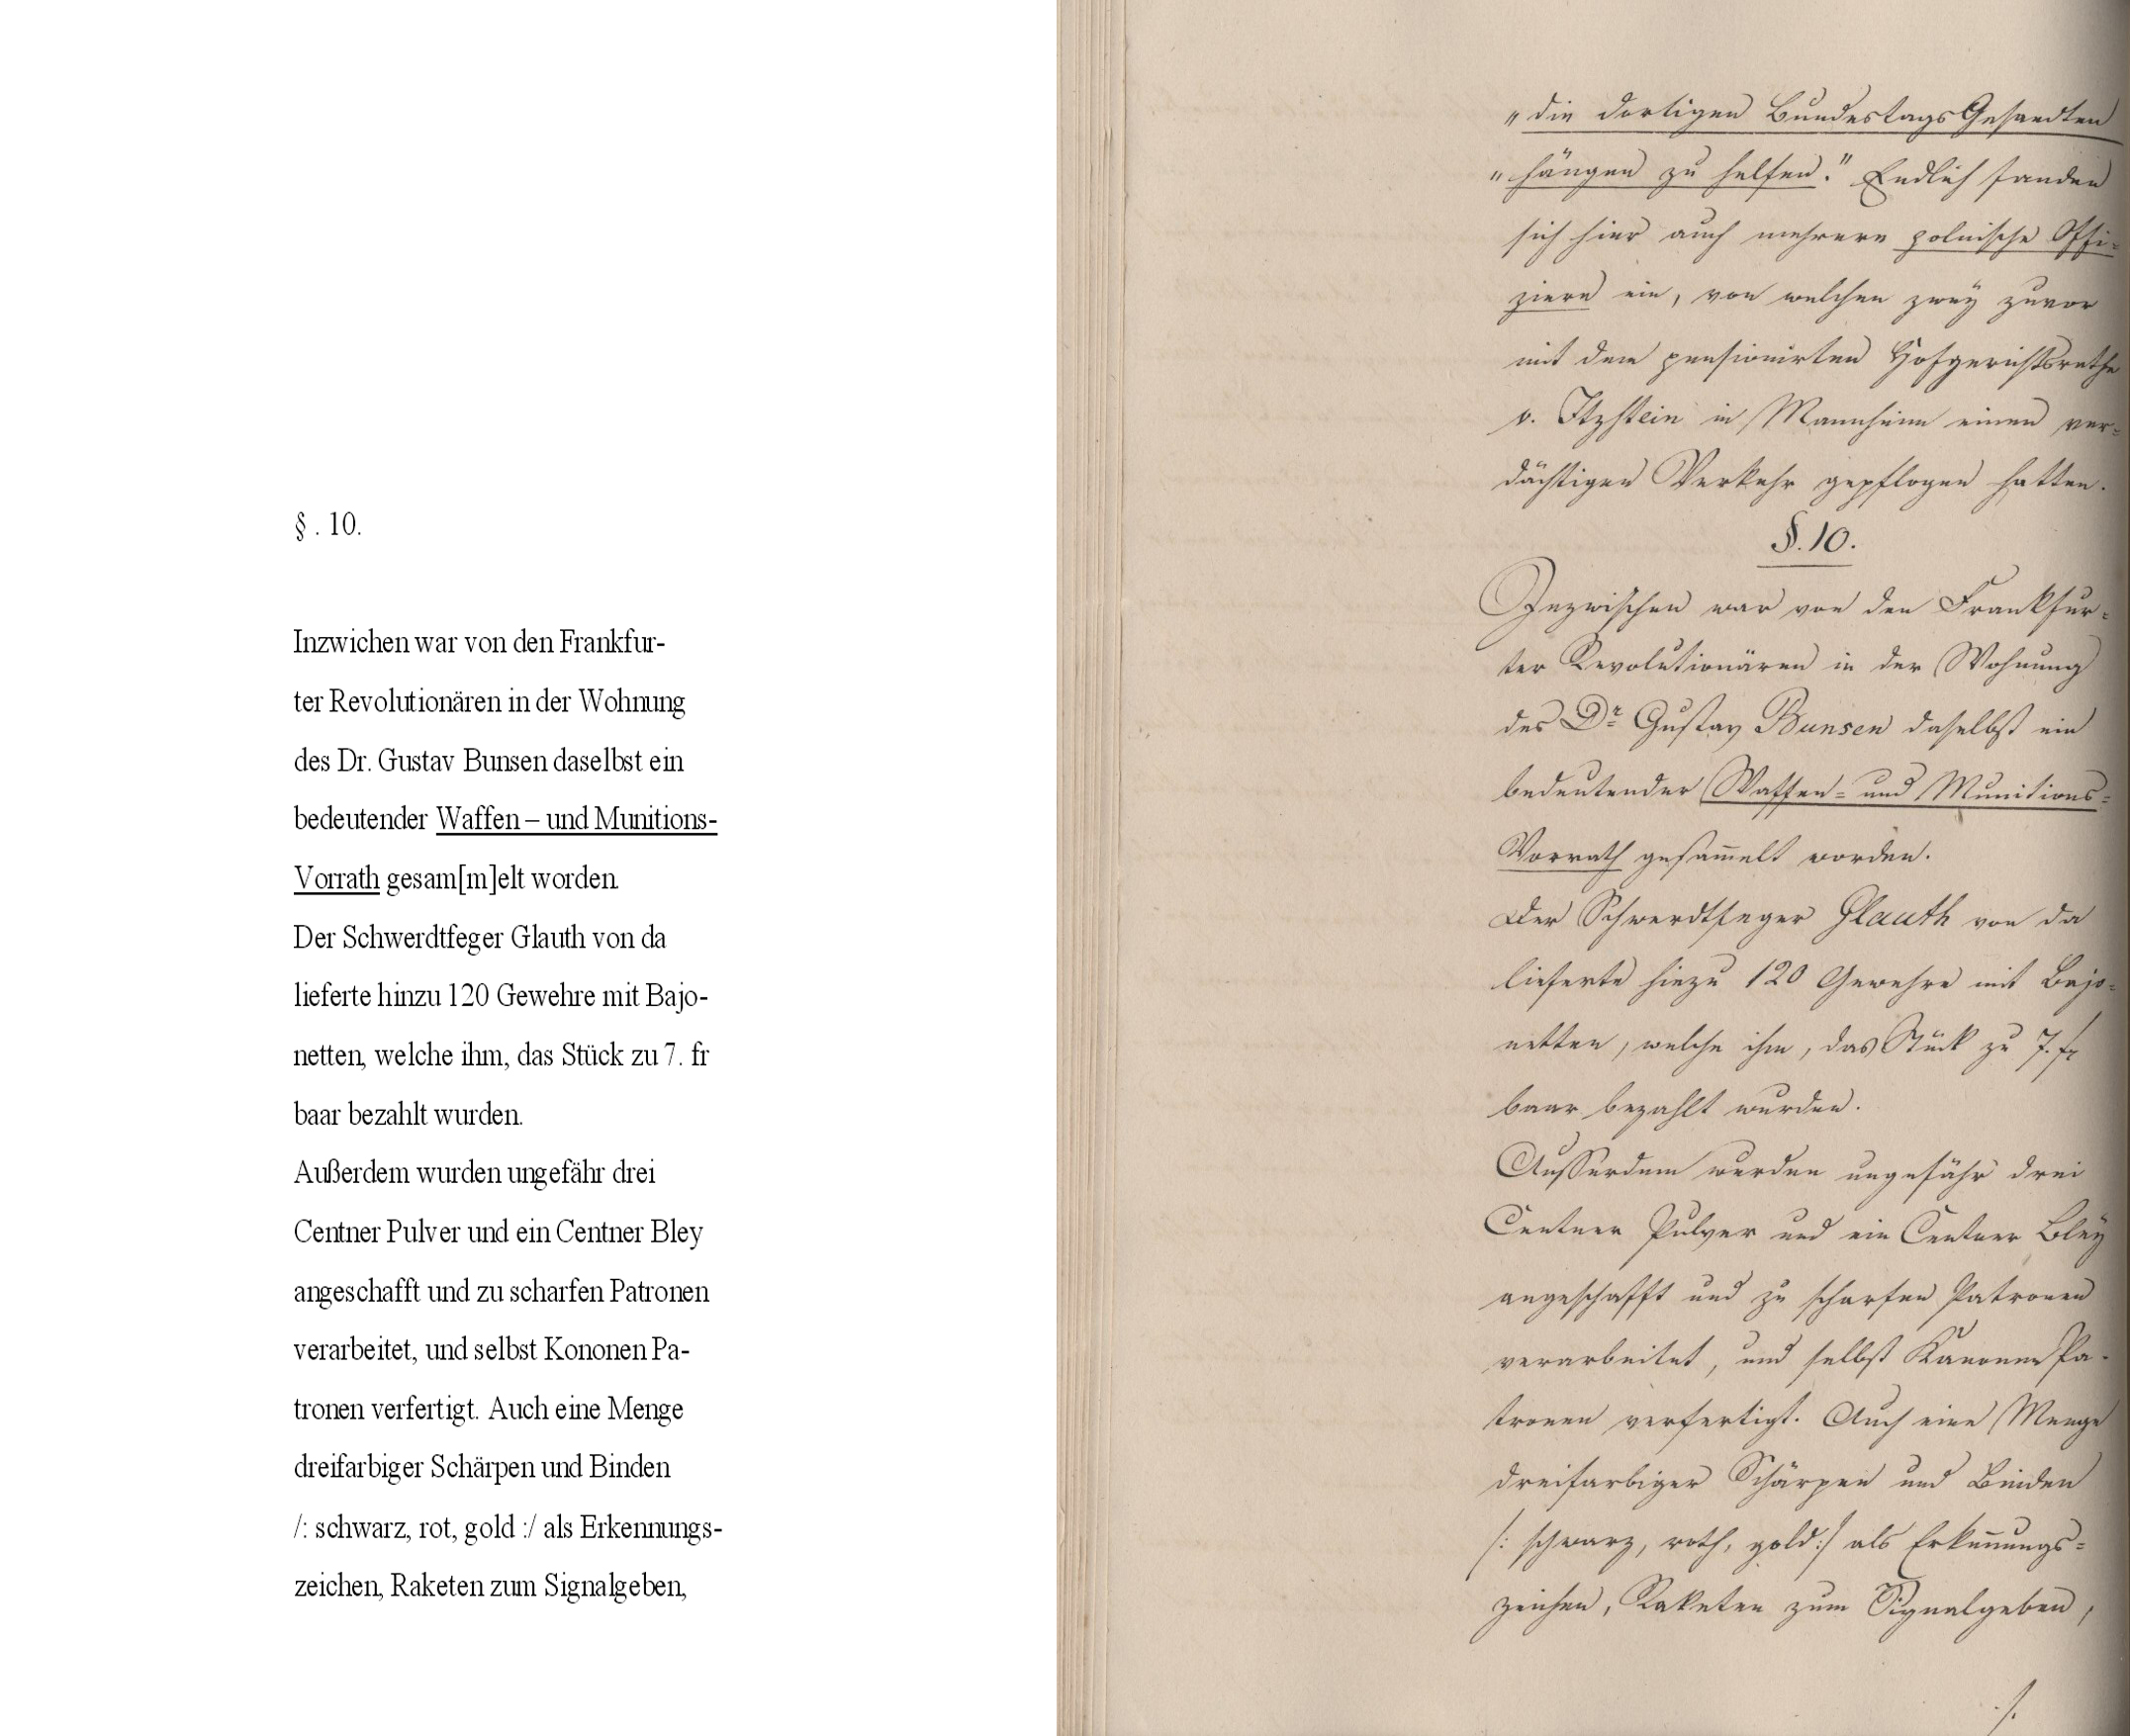 § . 10.
Inzwichen war von den Frankfur-
ter Revolutionären in der Wohnung
des Dr. Gustav Bunsen daselbst ein
bedeutender Waffen – und Munitions-
Vorrath gesam[m]elt worden.
Der Schwerdtfeger Glauth von da
lieferte hinzu 120 Gewehre mit Bajo-
netten, welche ihm, das Stück zu 7. fr
baar bezahlt wurden.
Außerdem wurden ungefähr drei
Centner Pulver und ein Centner Bley
angeschafft und zu scharfen Patronen
verarbeitet, und selbst Kononen Pa-
tronen verfertigt. Auch eine Menge
dreifarbiger Schärpen und Binden
/: schwarz, rot, gold :/ als Erkennungs-
zeichen, Raketen zum Signalgeben,
"die dortigen Bundestags Gesandten
"hängen zu helfen." Endlich fanden
sich hier auch mehrere polnische Offi-
ziere ein, von welchen zwey zuvor
mit dem pensionirten Hofgerichtsrathe
v. Itzstein in Mannheim einen ver-
dächtigen Verkehr gepflogen hatten.
§. 10.
Inzwischen war von den Frankfur-
ter Revolutionären in der Wohnung
des Dr Gustav Bunsen daselbst ein
bedeutender Waffen- und Munitions-
Vorrath gesam̄elt worden.
Der Schwerdtfeger Glauth von da
lieferte hiezu 120 Gewehre mit Bajo-
netten, welche ihm, das Stück zu 7. fr
baar bezahlt wurden.
Ausserdem wurden ungefähr drei
Centner Pulver und ein Centner Bley
angeschafft und zu scharfen Patronen
verarbeitet, und selbst Kanonen Pa-
tronen verfertigt. Auch eine Menge
dreifarbiger Schärpen und Binden
/: schwarz, roth, gold :/ als Erken̄ungs-
zeichen, Raketen zum Signalgeben,
./.